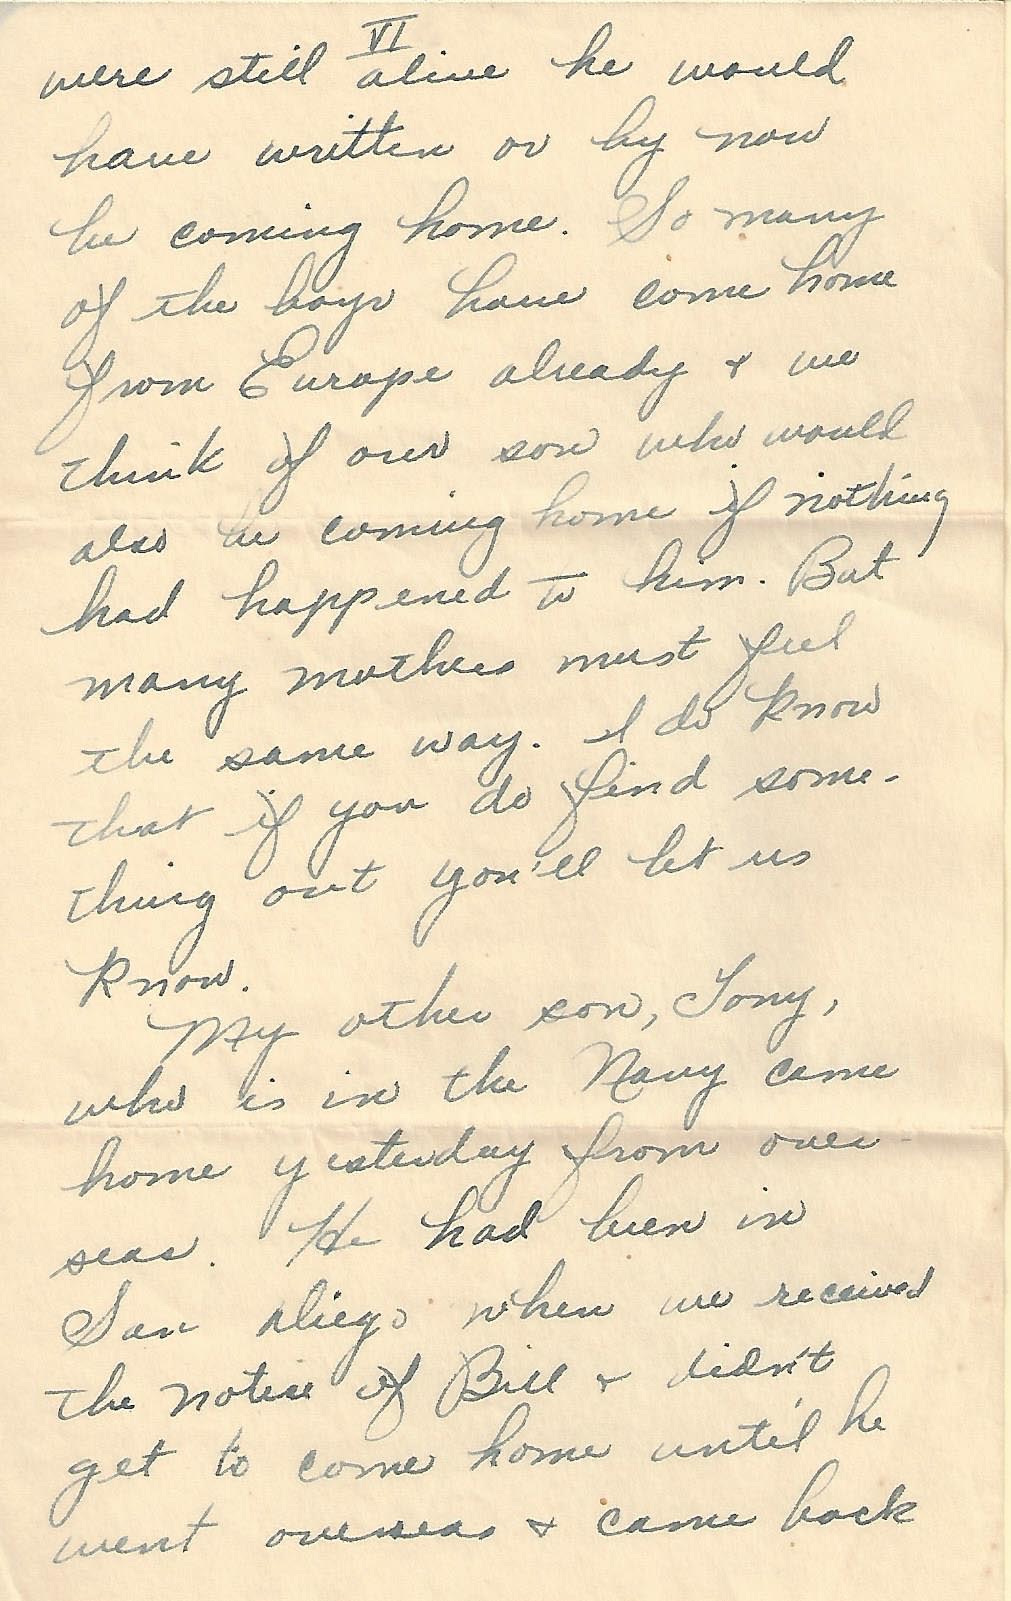 VI
were still alive he would
have written or by now
be coming home. So many
of the boys have come home
from Europe already & we
think of our son who would
also be coming home if nothing
had happened to him. But
many mothers must feel
the same way. I do know
that if you do find some-
thing out you'll let us
know.
My other son, Tony,
who is in the Navy came
home yesterday from over-
seas. He had been in
San Diego when we received
the notice of Bill & didn't
get to come home until he
went overseas & came back